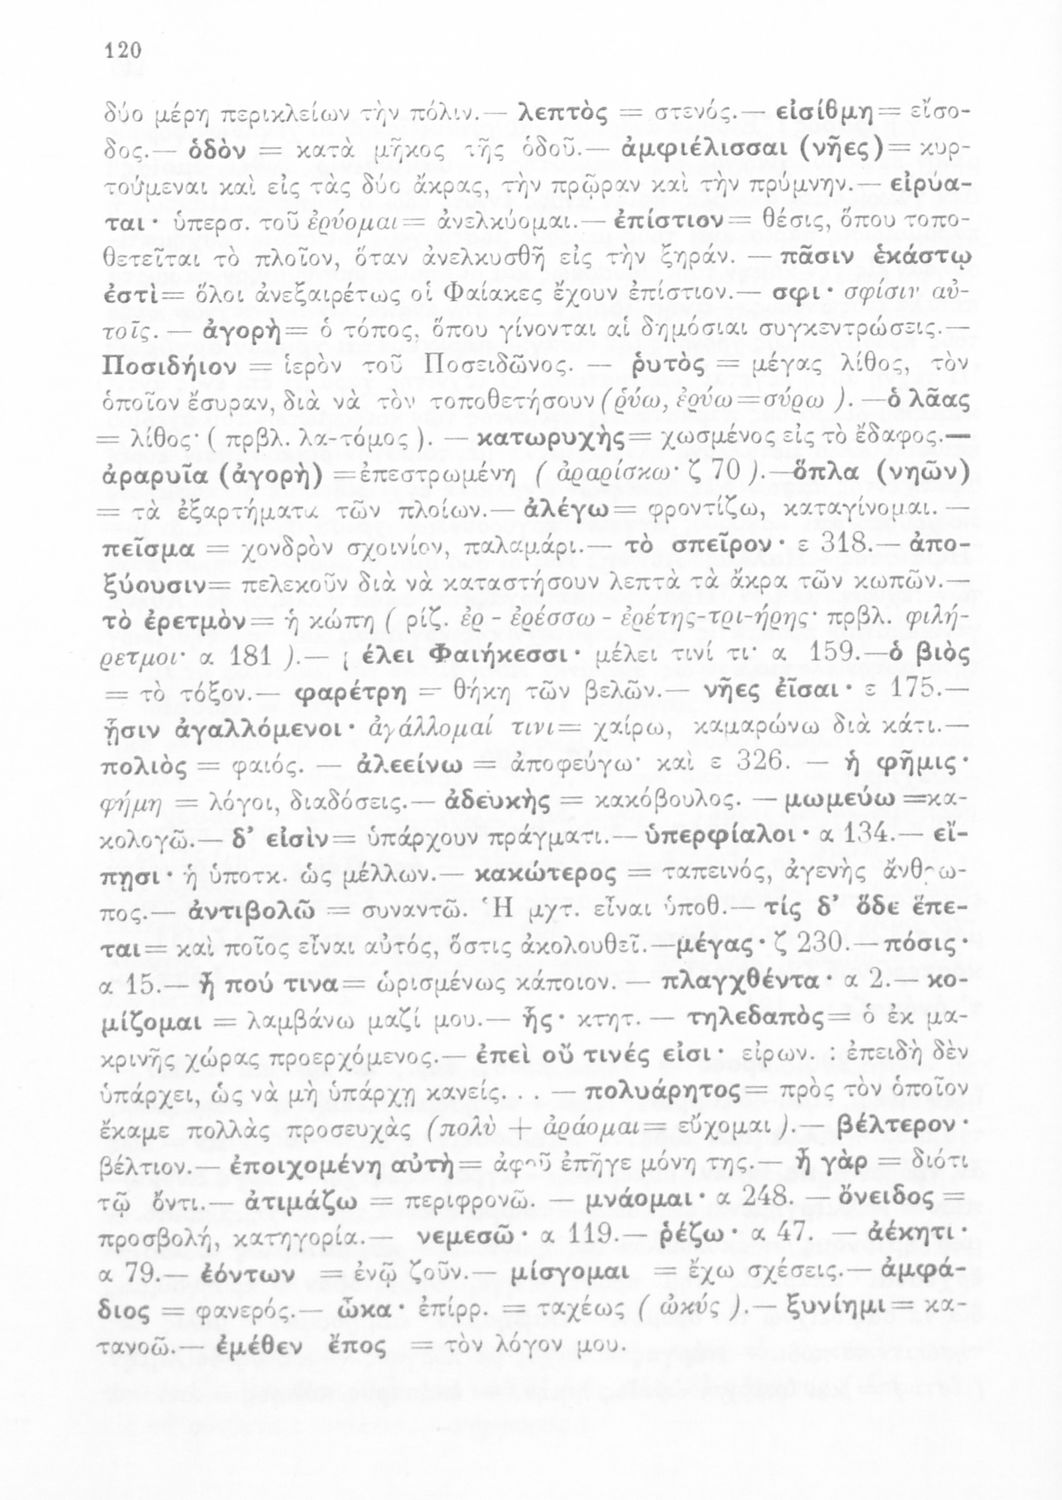 120
δύο μέρη περικλείων τὴν πόλιν.— λεπτὸς = στενός.— εἰσίθμη= εἴσο-
δος.— ὁδὸν = κατὰ μῆκος τῆς ὁδοῦ.— ἀμφιέλισσαι (νῆες)= κυρ-
τούμεναι καὶ εἰς τὰς δύο ἄκρας, τὴν πρῷραν καὶ τὴν πρύμνην.— εἰρύα-
ται · ὑπερσ. τοῦ ἐρύομαι= ἀνελκύομαι.— ἐπίστιον= θέσις, ὅπου τοπο-
θετεῖται τὸ πλοῖον, ὅταν ἀνελκυσθῆ εἰς τὴν ξηράν. — πᾶσιν ἑκάστῳ
ἐστὶ= ὅλοι ἀνεξαιρέτως οἱ Φαίακες ἔχουν ἐπίστιον.— σφι · σφίσιν αὐ-
τοῖς. — ἀγορὴ= ὁ τόπος, ὅπου γίνονται αἱ δημόσιαι συγκεντρώσεις.—
Ποσιδήιον = ἱερὸν τοῦ Ποσειδῶνος. — ῥυτὸς = μέγας λίθος, τὸν
ὁποῖον ἔσυραν, διὰ νὰ τὸν τοποθετήσουν (ῥύω, ἐρύω=σύρω ). —ὁ λᾶας
= λίθος· ( πρβλ. λα-τόμος ). — κατωρυχὴς= χωσμένος εἰς τὸ ἔδαφος.—
ἀραρυῖα (ἀγορὴ) =ἐπεστρωμένη ( ἀραρίσκω· ζ 70 ).—ὅπλα (νηῶν)
= τὰ ἐξαρτήματα τῶν πλοίων.— ἀλέγω= φροντίζω, καταγίνομαι. —
πεῖσμα = χονδρὸν σχοινίον, παλαμάρι.— τὸ σπεῖρον · ε 318.— ἀπο-
ξύουσιν= πελεκοῦν διὰ νὰ καταστήσουν λεπτὰ τὰ ἄκρα τῶν κωπῶν.—
τὸ ἐρετμὸν= ἡ κώπη ( ρίζ. ἐρ - ἐρέσσω - ἐρέτης-τρι-ήρης· πρβλ. φιλή-
ρετμοι· α 181 ).— έλει Φαιήκεσσι · μέλει τινί τι· α 159.—ὁ βιὸς
= τὸ τόξον.— φαρέτρη = θήκη τῶν βελῶν.— νῆες ἐῖσαι · ε 175.—
ᾗσιν ἀγαλλόμενοι · ἀγάλλομαί τινι= χαίρω, καμαρώνω διὰ κάτι.—
πολιὸς = φαιός. — ἀλεείνω = ἀποφεύγω· καὶ ε 326. — ἡ φῆμις ·
φήμη = λόγοι, διαδόσεις.— ἀδευκὴς = κακόβουλος. — μωμεύω =κα-
κολογῶ.— δ' εἰσὶν= ὑπάρχουν πράγματι.— ὑπερφίαλοι · α 134.— εἴ-
πῃσι · ἡ ὑποτκ. ὡς μέλλων.— κακώτερος = ταπεινός, ἀγενὴς ἄνθρω-
πος.— ἀντιβολῶ = συναντῶ. Ἡ μχτ. εἶναι ὑποθ.— τίς δ' ὅδε ἕπε-
ται= καὶ ποῖος εἶναι αὐτός, ὅστις ἀκολουθεῖ.—μέγας · ζ 230.—πόσις ·
α 15.— ἦ πού τινα= ὡρισμένως κάποιον. — πλαγχθέντα · α 2.— κο-
μίζομαι = λαμβάνω μαζί μου.— ἧς · κτητ. — τηλεδαπὸς= ὁ ἐκ μα-
κρινῆς χώρας προερχόμενος.— ἐπεὶ οὔ τινές εἰσι · εἰρων. : ἐπειδὴ δὲν
ὑπάρχει, ὡς νὰ μὴ ὑπάρχῃ κανείς. . . — πολυάρητος= πρὸς τὸν ὁποῖον
ἔκαμε πολλὰς προσευχὰς (πολὺ + ἀράομαι= εὔχομαι ).— βέλτερον ·
βέλτιον.— ἐποιχομένη αὐτὴ= ἀφοῦ ἐπῆγε μόνη της.— ἦ γὰρ = διότι
τῷ ὄντι.— ἀτιμάζω = περιφρονῶ. — μνάομαι · α 248. — ὄνειδος =
προσβολή, κατηγορία.— νεμεσῶ · α 119.— ῥέζω · α 47. — ἀέκητι ·
α 79.— ἐόντων = ἐνῷ ζοῦν.— μίσγομαι = ἔχω σχέσεις.— ἀμφά-
διος = φανερός.— ὦκα · ἐπίρρ. = ταχέως ( ὠκύς ).— ξυνίημι= κα-
τανοῶ.— ἐμέθεν ἔπος = τὸν λόγον μου.